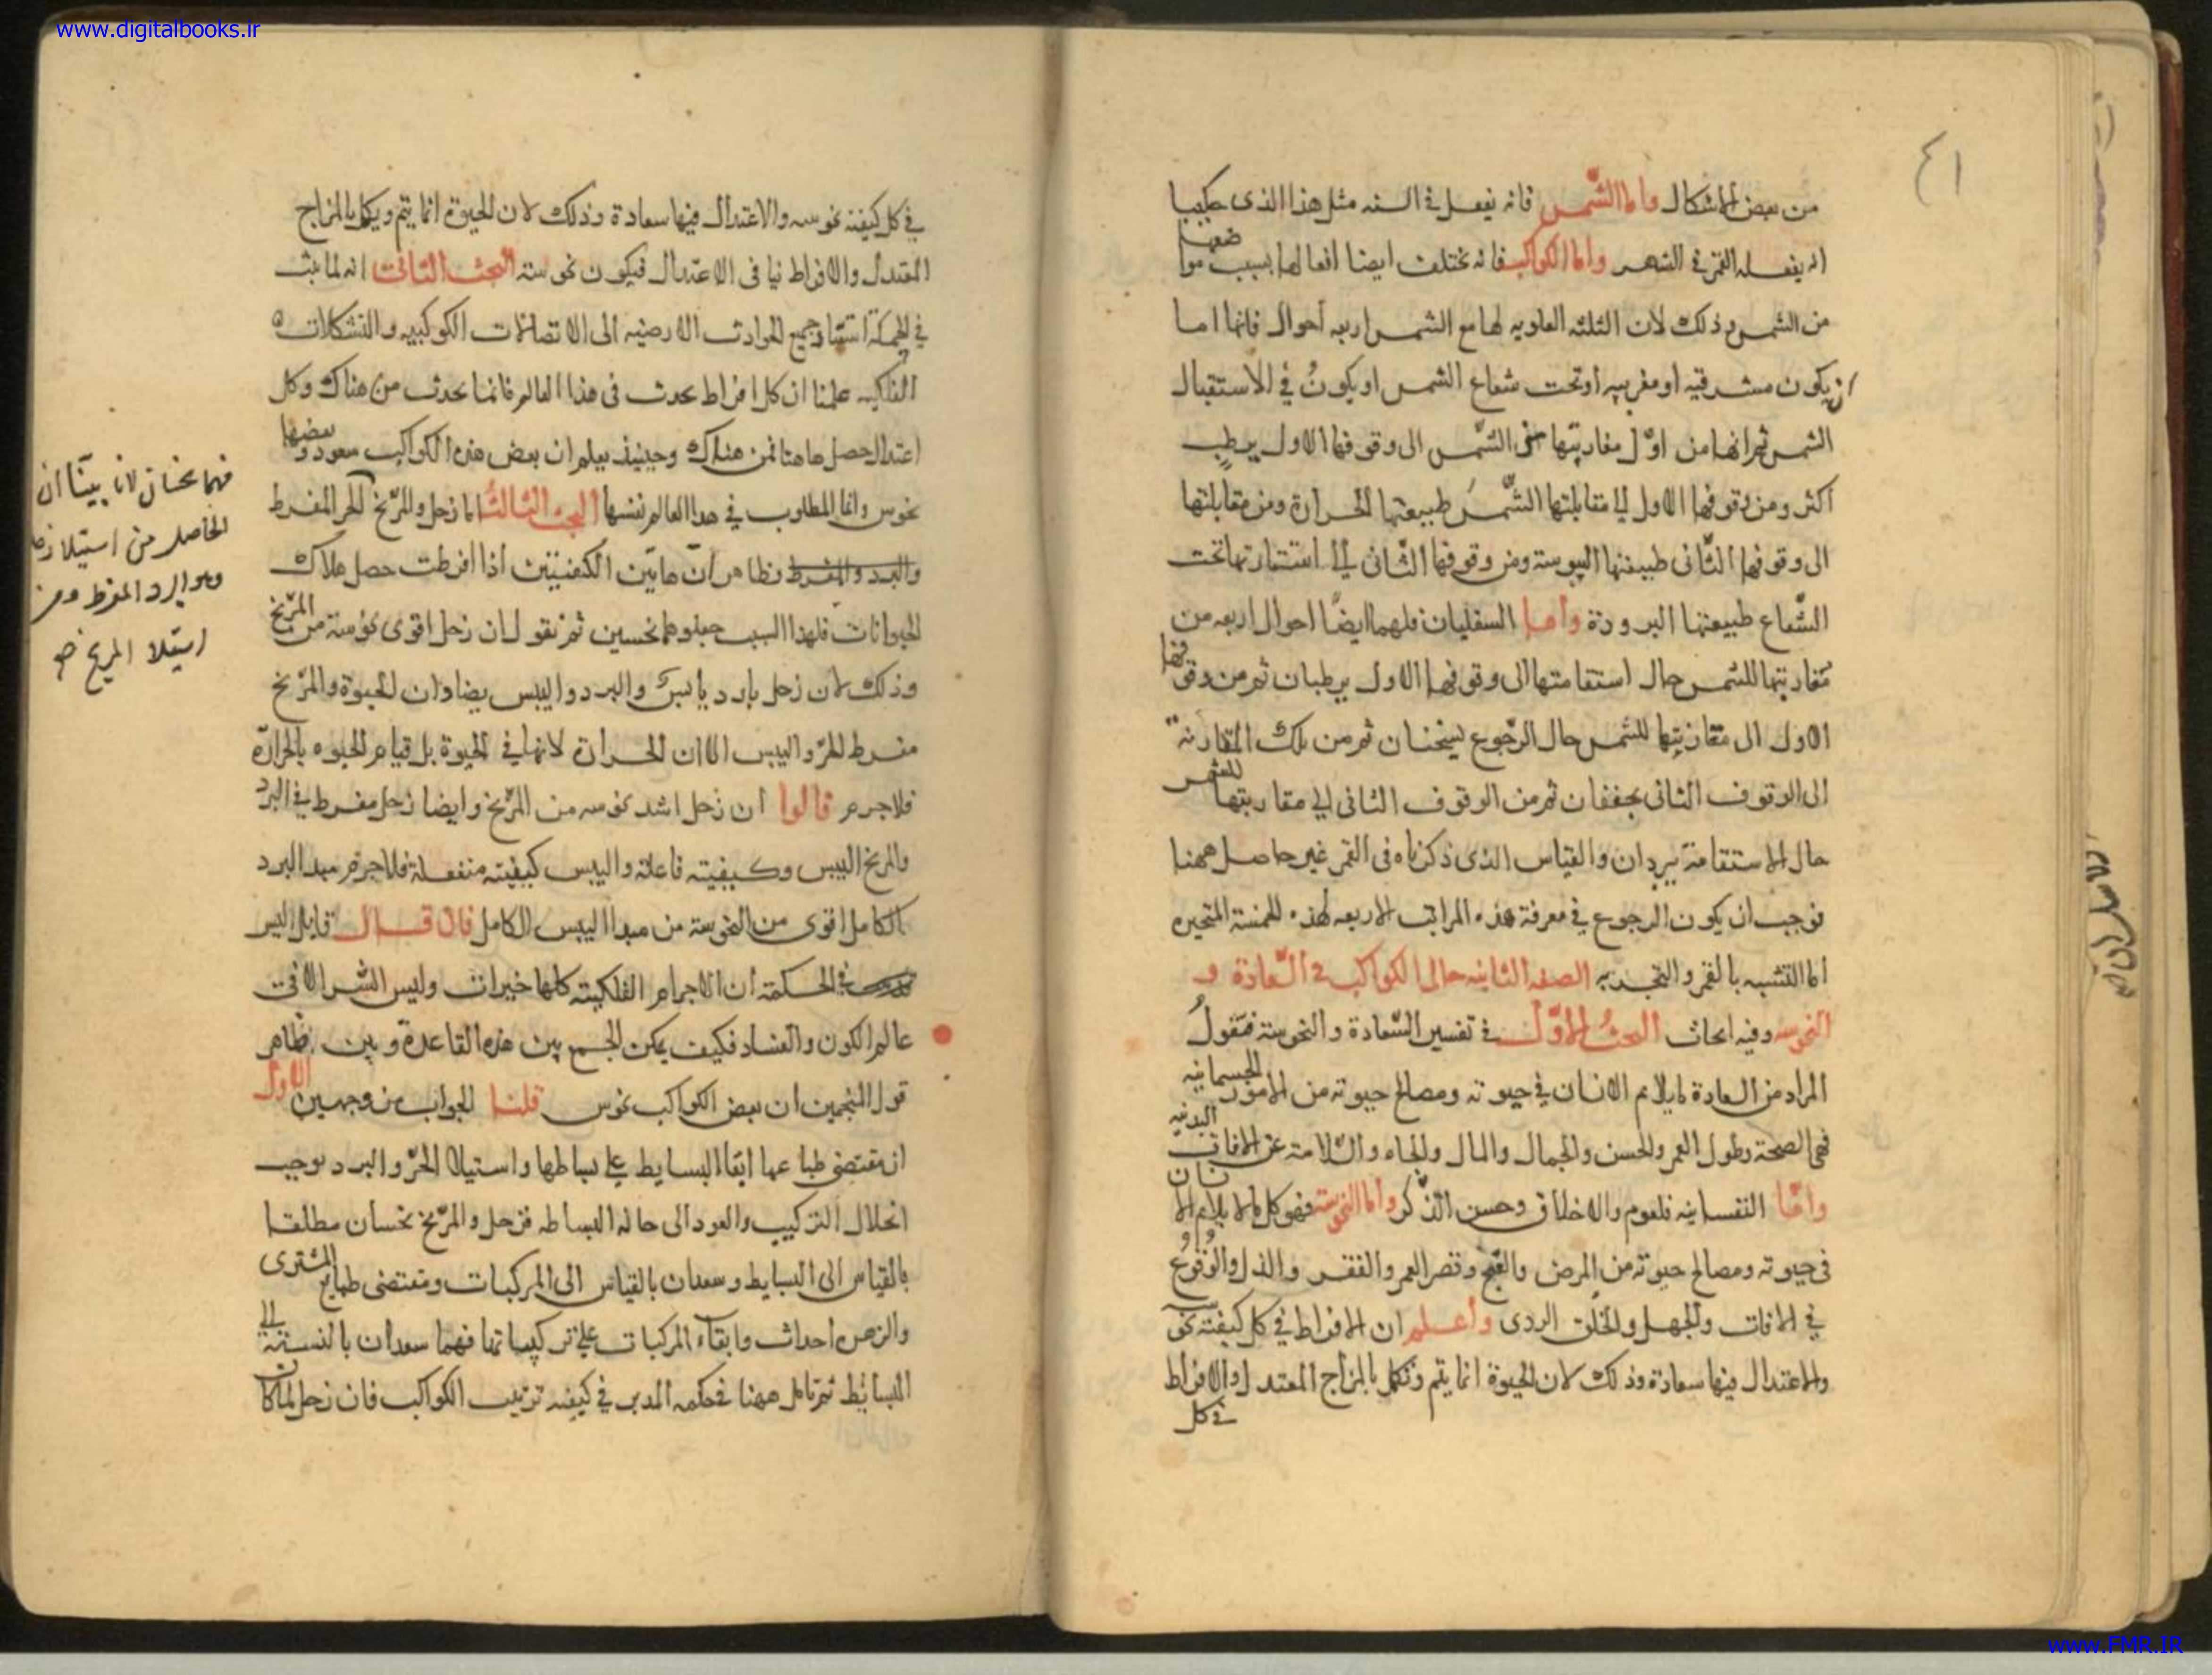 www.digitalbooks.ir
٤١
من بعض الاشكال واما الشمس فانه يفعل فى السنه مثل هذا الذى
انه يفعله القمر فى الشهر واما الكواكب فانه تختلف ايضا افعالها بسبب مواضعها
من الشمس وذلك لان الثلثه العلويه لها مع الشمس اربعه أحوال فانها اما
ان يكون مشرقيه او مغربيه أو تحت شعاع الشمس او يكونُ في الاستقبال
الشمس ثم انها من اوّل مفارقتها الشّمس الى وقوفها الاول يرطب
أكثر ومن وقوفها الاول الى مقابلتها الشّمسَ طبيعتها الحرارة ومن مقابلتها
الى وقوفها الثّانى طبيعتها اليبوسة ومن وقوفها الثّانى الى استتارتها تحت
الشّعاع طبيعتها البرودة وأما السفليان فلهما ايضًا احوال اربعه من
مفارقتها للشمس حال استقامتها الى وقوفها الاول يرطبان ثم من وقوفها
الاول الى مقارنتها للشمس حال الرّجوع يسخنان ثم من تلك المقارنة
الى الوقوف الثانى يجففان ثم من الوقوف الثانى الى مقاربتها للشمس
حال الاستقامة يبردان والقياس الذى ذكرناه فى القمر غير حاصل ههنا
فوجب ان يكون الرجوع في معرفة هذه المراتب الاربعه لهذه الخمسة المتحيره
اما التشبيه بالقمر والتجربه الصفه الثانيه حالى الكواكب فى السّعادة و
النحوسه وفيه ابحاث البحثُ الاوّل فى تفسير السّعادة والنحوسة فنقولُ
المراد من السعادة ما يلايم الانسان في حيوته ومصالح حيوته من الامور الجسمانيه
فهى الصحة وطول العمر والحسن والجمال والمال والجاه والسّلامة عن الافات البدنيه
وامّا النفسانيه فلعوم والاخلاق وحسن الذّكر وأما النحوسة فهو كل ما لا يلايم الانسان
فى حيوته ومصالح حيوته من المرض والقبح وقصر العمر والفقر والذل والوُقوُع
في الافات والجهل والخلق الردى وأعلم ان الافراط في كل كيفية نحوسه
والاعتدال فيها سعادة وذلك لان الحيوة انما يتم وتكمل بالمزاج المعتدل والافراط
فى كل
في كل كيفية نحوسه والاعتدال فيها سعادة وذلك لان الحيوة انما يتم ويكمل بالمزاج
المعتدل والافراط ينافى الاعتدال فيكون نحوسة البحث الثانى انه لما ثبت
في الحكمة استناد جميع الحوادث الارضيه الى الاتصالات الكوكبيه والتشكلات
الفلكيه علمنا ان كل افراط يحدث فى هذا العالم فانما يحدث من هناك وكل
اعتدال حصل هاهنا فمن هناك وحينئذ يعلم ان بعض هذه الكواكب سعود وبعضها
نحوس وانما المطلوب في هذا العالم نفسها البحث الثالثُ اما زحل والمرّيخ الحر المفرط
والبرد والمفرط فظاهر أن هاتين الكيفيتين اذا افرطت حصل هلاك
الحيوانات فلهذا السبب جعلوهما نحسين ثم نقول ان زحل اقوى نحوسة من المرّيخ
وذلك لان زحل بارد يابس والبرد واليبس يضادان للحيوة والمرّيخ
مفرط الحرّ واليبس الا ان الحرارة لا تنافي الحيوة بل قيام الحيوه بالحرارة
فلاجرم قالوا ان زحل اشد نحوسه من المرّيخ وايضا زحل مفرط في البرد
والمريخ اليبس وكيفيته فاعلة واليبس كيفيته منفعلة فلاجرم مبدا البرد
الكامل اقوى من النحوسة من مبدا اليبس الكامل فان قال قايل اليس
في الحكمة أن الاجرام الفلكيّة كلها خيرات وليس الشّر الا فى
عالم الكون والفساد فكيف يمكن الجمع بين هذه القاعدة وبين ظاهر
قول المنجمين ان بعض الكواكب نحوس قلنا الجواب من وجهين الاول
ان مقتضى طباعها ابقاء البسايط على بساطها واستيلا الحرّ والبرد يوجب
انحلال التركيب والعود الى حالة البساطه فزحل والمرّيخ نحسان مطلقا
بالقياس الى البسايط وسعدان بالقياس الى المركبات ومقتضى طبايع المشترى
والزهره احداث وابقاء المركبات على تركيباتها فهما سعدان بالنسبة الى
البسائط ثم تامل ههنا فى حكمه المدبر في كيفيه ترتيب الكواكب فان زحل لما كان
فهما نحسان لانا بينّا ان
الحاصل من استيلا زحل
هو البرد المفرط ومن
استيلا المريخ
www.FMR.IR